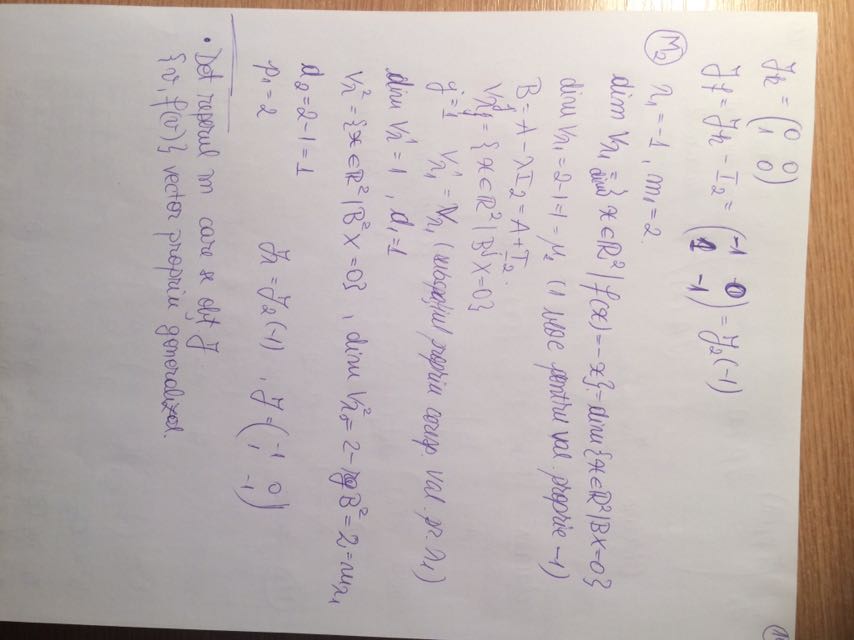 J_h = (0 0 / 1 0)
J_f = J_h - I_2 = (-1 0 / 1 -1) = J_2(-1)
M_2 λ_1 = -1, m_1 = 2
dim V_λ1 = dim {x ∈ ℝ² | f(x) = -x} = dim {x ∈ ℝ² | BX = 0}
dim V_λ1 = 2-1 = 1 = μ_2 (1 bloc pentru val. proprie -1)
B = A - λI_2 = A + I_2
V^j_λ1 = {x ∈ ℝ² | B^j X = 0}
j = 1 V^1_λ1 = V_λ1 (subspațiul propriu coresp. val. pr. λ_1)
dim V^1_λ = 1, d_1 = 1
V_λ^2 = {x ∈ ℝ² | B² X = 0}, dim V^2_λ1 = 2 - rg B² = 2 = m_λ1
d_2 = 2-1 = 1
p_1 = 2 J_h = J_2(-1), J = (-1 0 / 1 -1)
• Det reperul în care se obț J
{v, f(v)} vector propriu generalizat.